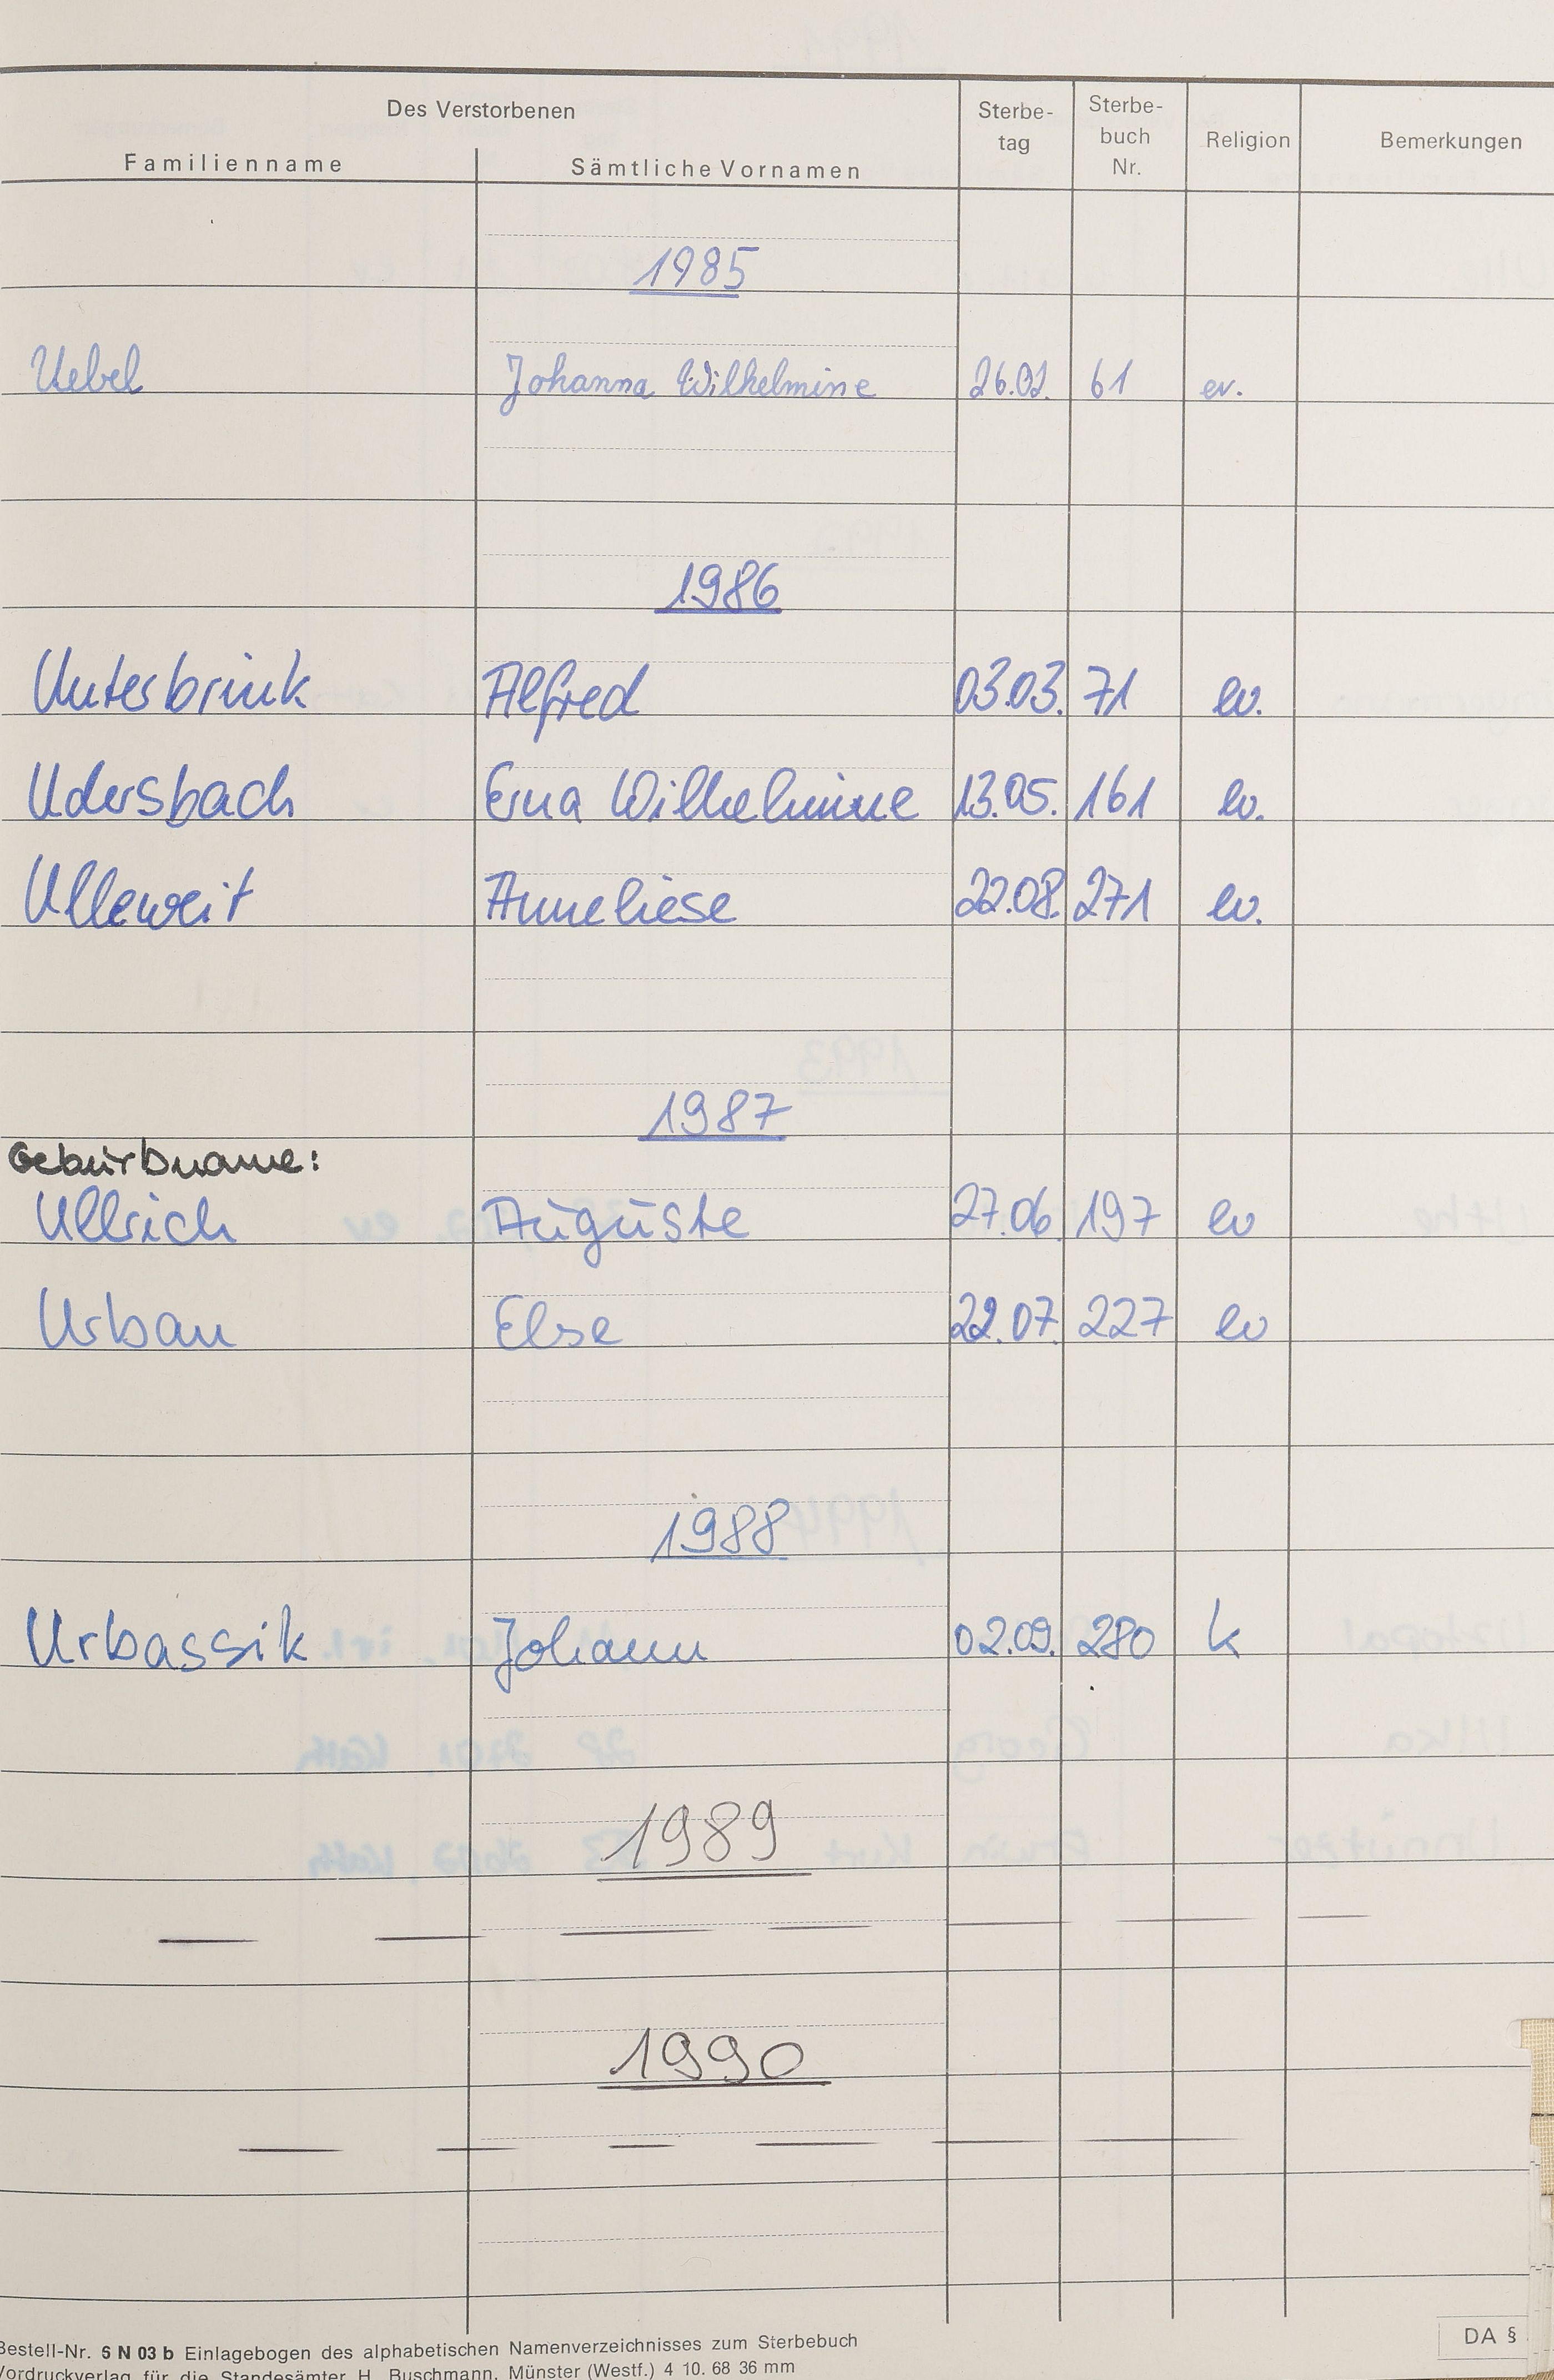 Des Verstorbenen
Familienname
Sämtliche Vornamen
Sterbe-
tag
Sterbe-
buch
Nr.
Religion
Bemerkungen
1985
Uebel Johanna Wilhelmine 26.02. 61 ev.
1986
Unterbrink Alfred 03.03. 71 ev.
Udersbach Erna Wilhelmine 13.05. 161 ev.
Ulleweit Anneliese 22.08. 271 ev.
1987
Geburtsname:
Ullrich Auguste 27.06. 197 ev
Urban Else 22.07. 227 ev
1988
Urbassik Johann 02.09. 280 k
1989
1990
Bestell-Nr. 6 N 03 b Einlagebogen des alphabetischen Namenverzeichnisses zum Sterbebuch
Vordruckverlag für die Standesämter H. Buschmann, Münster (Westf.) 4 10. 68 36 mm
DA §